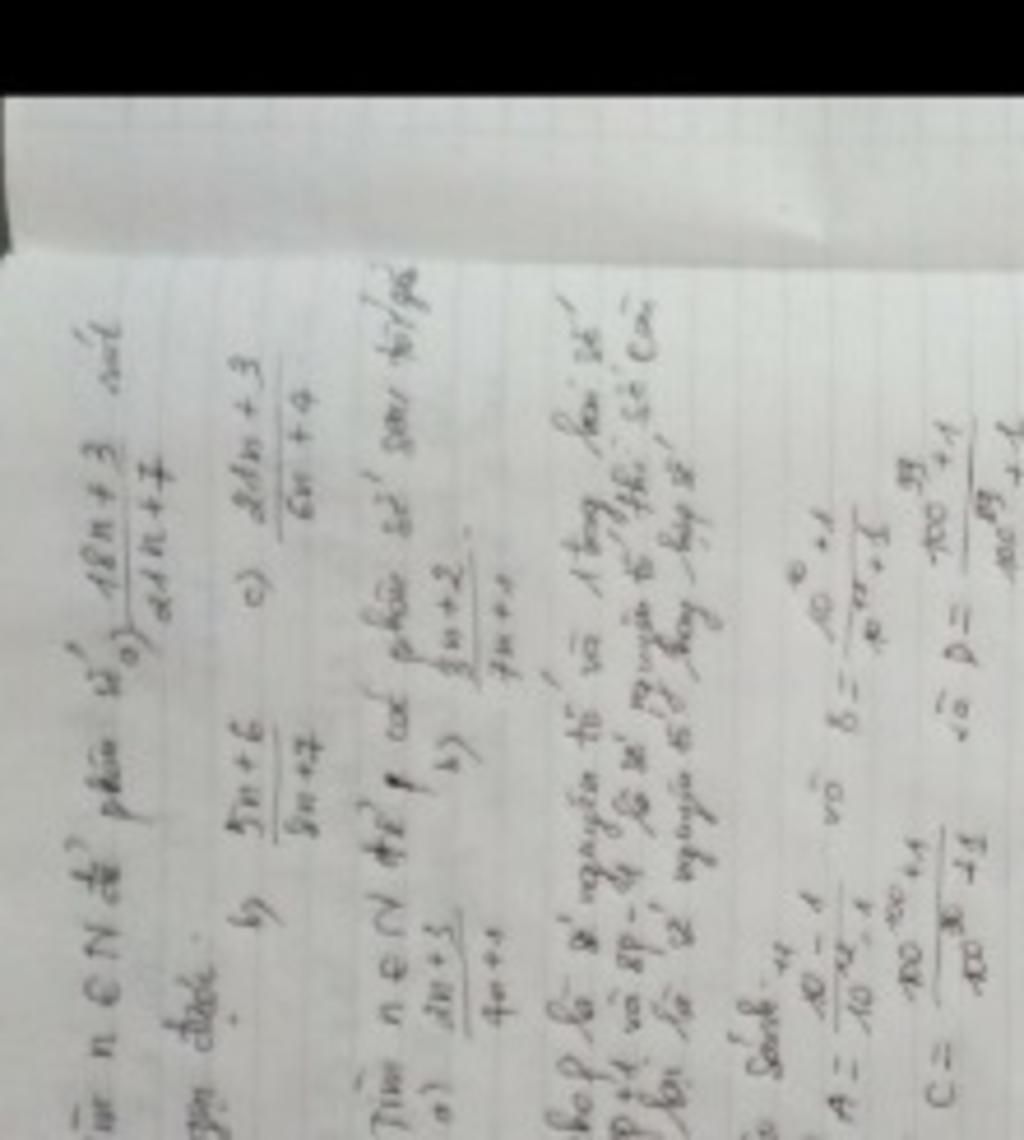 n ∈ N để phân số a) 18n + 3 / 21n + 7 rút
gọn được.
b) 5n + 6 / 8n + 7 c) 21n + 3 / 6n + 4
Tìm n ∈ N để p có phân số sau tối giả
a) 2n + 3 / 4n + 1 b) 3n + 2 / 7n + 1
ho p là số nguyên tố và 1 trong hai số
8p - 1 là số nguyên tố thì số còn
lại là số nguyên tố hay hợp số
sánh
A = 10^11 - 1 / 10^12 - 1 và B = 10^10 + 1 / 10^11 + 1
C = 100^100 + 1 / 100^90 + 1 và D = 100^99 + 1 / 100^89 + 1